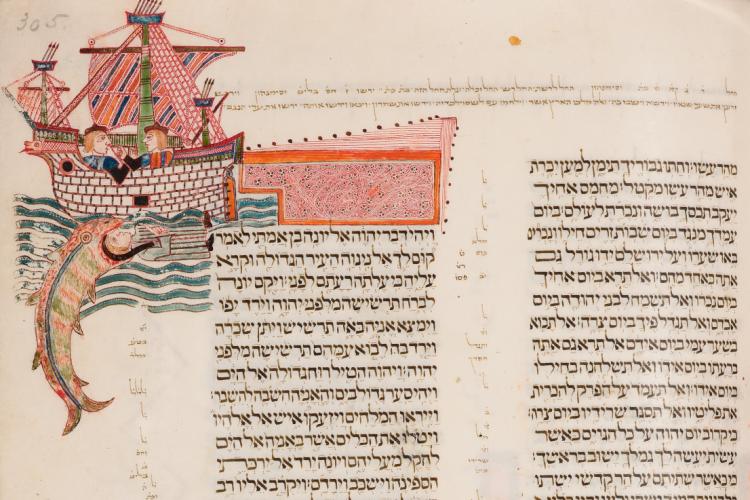 305.
מהר עשו וחתו גבוריך תימן למען יכרת
איש מהר עשו מקטל מחמס אחיך
יעקב תכסך בושה ונכרת לעולם ביום
עמדך מנגד ביום שבות זרים חילו ונכרים
באו שערו ועל ירושלם ידו גורל גם
אתה כאחד מהם ואל תרא ביום אחיך
ביום נכרו ואל תשמח לבני יהודה ביום
אבדם ואל תגדל פיך ביום צרה אל תבוא
בשער עמי ביום אידם אל תרא גם אתה
ברעתו ביום אידו ואל תשלחנה בחילו
ביום אידו ואל תעמד על הפרק להכרית
את פליטיו ואל תסגר שרידיו ביום צרה
כי קרוב יום יהוה על כל הגוים כאשר
עשית יעשה לך גמלך ישוב בראשך
כי כאשר שתיתם על הר קדשי ישתו
ויהי דבר יהוה אל יונה בן אמתי לאמר
קום לך אל נינוה העיר הגדולה וקרא
עליה כי עלתה רעתם לפני ויקם יונה
לברח תרשישה מלפני יהוה וירד יפו
וימצא אניה באה תרשיש ויתן שכרה
וירד בה לבוא עמהם תרשישה מלפני
יהוה ויהוה הטיל רוח גדולה אל הים
ויהי סער גדול בים והאניה חשבה להשבר
וייראו המלחים ויזעקו איש אל אלהיו
ויטלו את הכלים אשר באניה אל הים
להקל מעליהם ויונה ירד אל ירכתי
הספינה וישכב וירדם ויקרב אליו רב